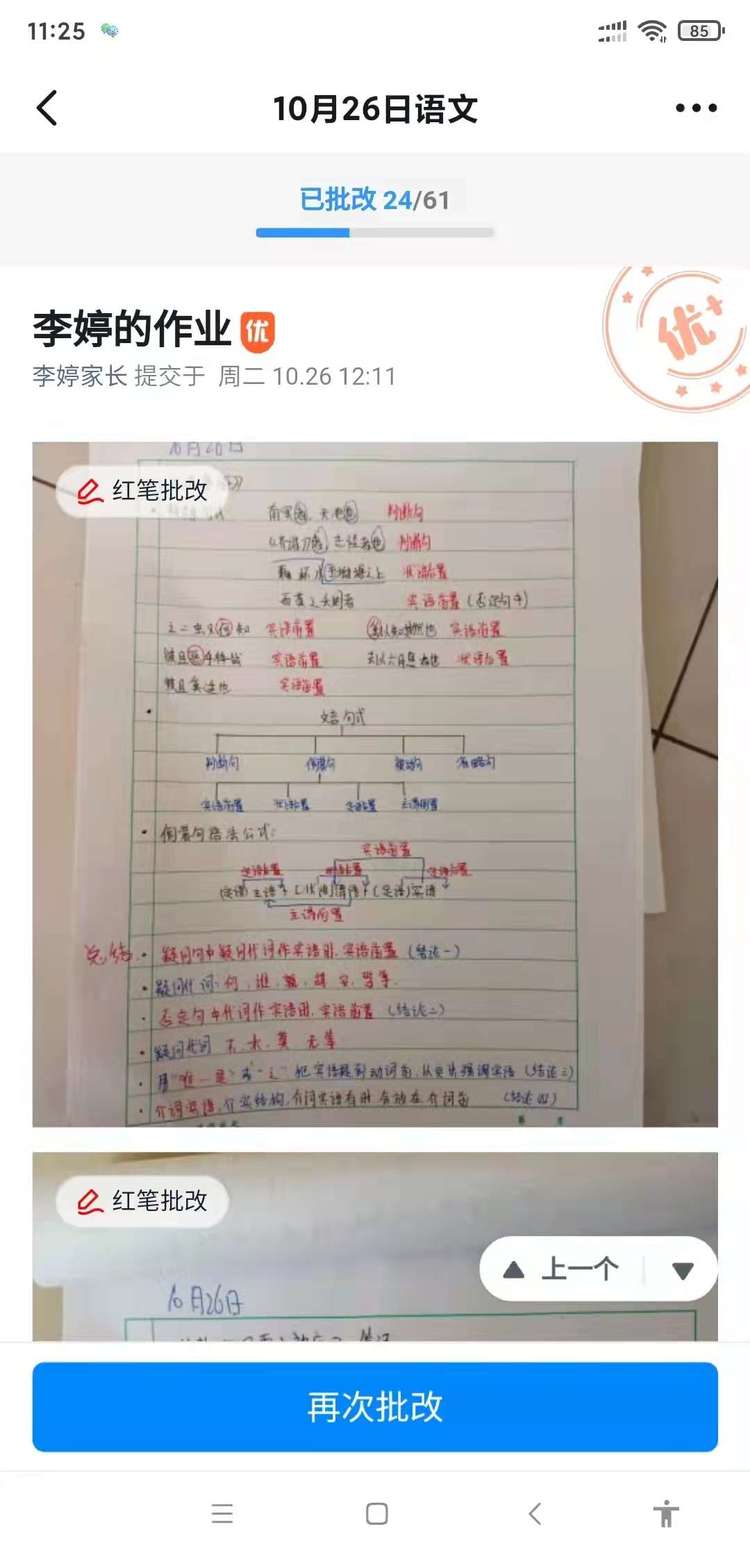 11:25
85
10月26日语文
已批改 24/61
李婷的作业 优
优+
李婷家长 提交于 周二 10.26 12:11
10月26日
红笔批改
判断句
判断句
状语后置
宾语前置(否定句中)
之二虫又何知 宾语前置 宾语前置
宾语前置 去以六月息者也 状语后置
宾语前置
文言句式
判断句 倒装句 被动句 省略句
宾语前置 状语后置 定语后置 主谓倒置
倒装句语法公式:
宾语前置
定语后置 定语后置
(定语)主语 (状语)谓语 (定语)宾语
主谓倒置
总结 疑问句中疑问代词作宾语时,宾语前置(结论一)
疑问代词:何、谁、孰、胡、安、等.
否定句中代词作宾语时,宾语前置(结论二)
疑问代词 不、未、莫、无等
用"唯…是"或"之"把宾语提到动词前,从而强调宾语(结论三)
介词宾语,介宾结构,介词宾语有时会放在介词前 (结论四)
红笔批改
上一个
10月26日
再次批改